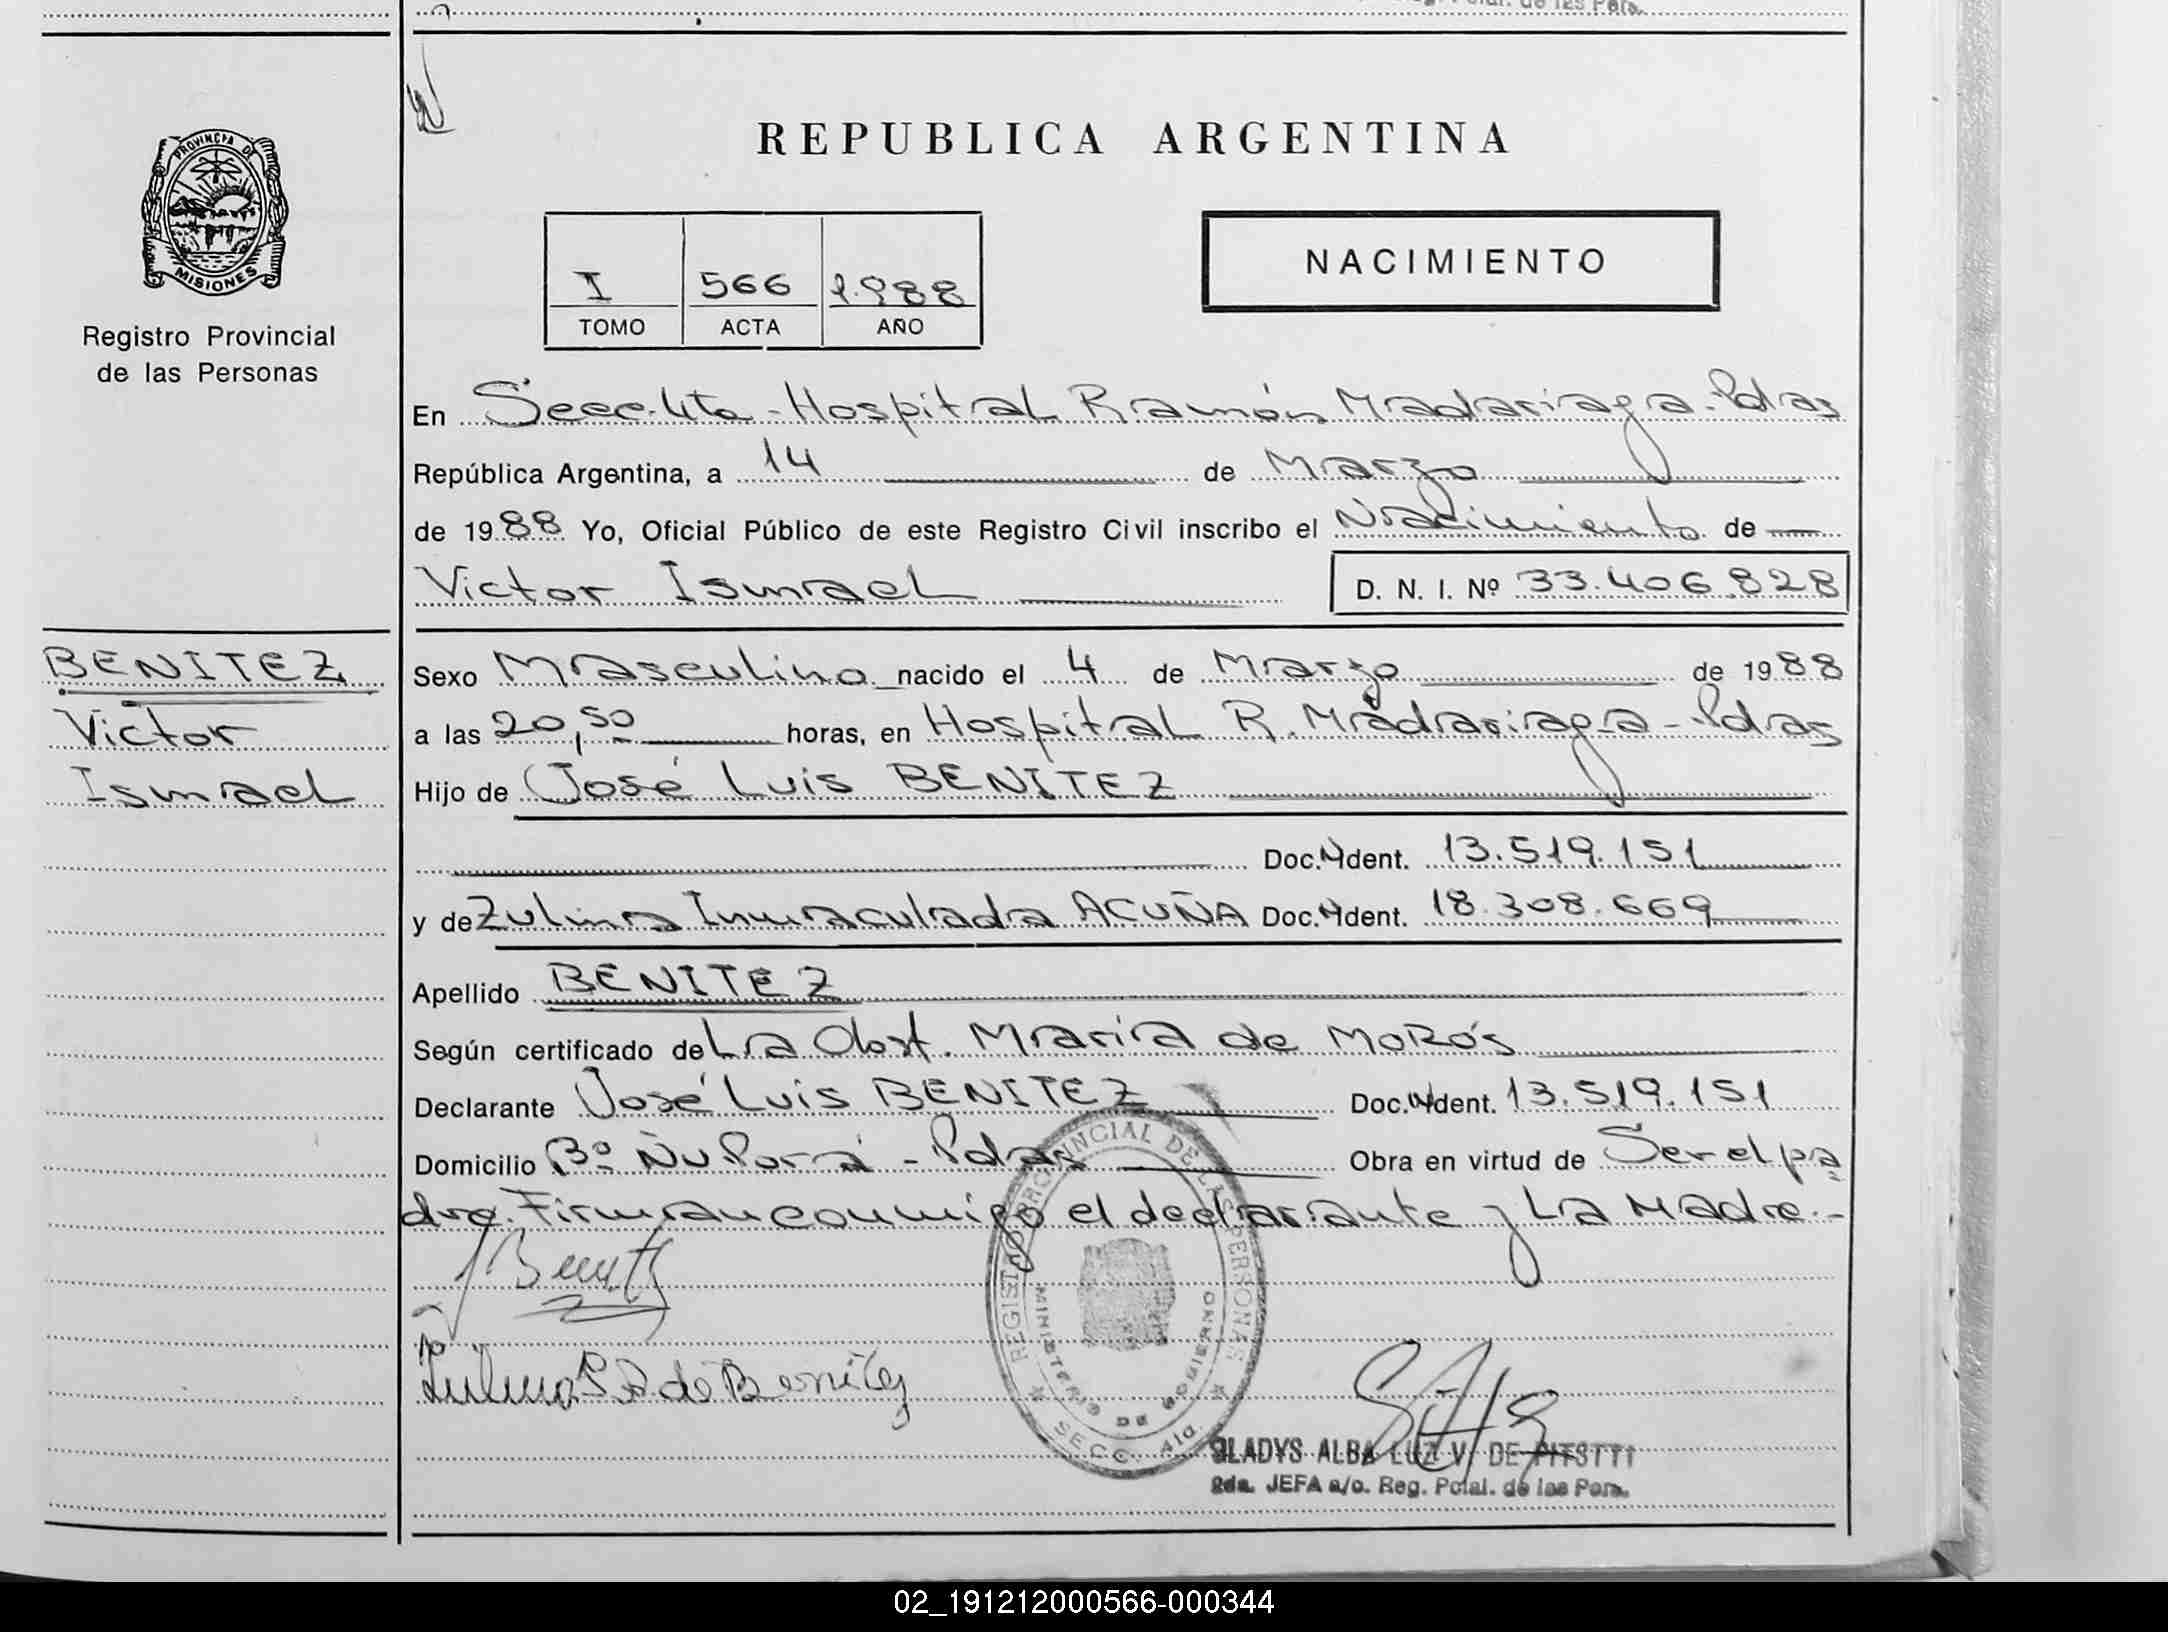 PROVINCIA DE
MISIONES
Registro Provincial
de las Personas
REPUBLICA ARGENTINA
I 566 1.988
TOMO ACTA AÑO
NACIMIENTO
En Secc. 4ta - Hospital Ramón Madariaga - Pdas
República Argentina, a 14 de Marzo
de 1988 Yo, Oficial Público de este Registro Civil inscribo el Nacimiento de
Victor Ismael D. N. I. Nº 33.406.828
BENITEZ
Victor
Ismael
Sexo Masculino nacido el 4 de Marzo de 1988
a las 20,50 horas, en Hospital R. Madariaga - Pdas
Hijo de José Luis BENITEZ
Doc. Ident. 13.519.151
y de Zulma Inmaculada ACUÑA Doc. Ident. 18.308.669
Apellido BENITEZ
Según certificado de La Obst. Maria de MoRós
Declarante José Luis BENITEZ Doc. Ident. 13.519.151
Domicilio Bº Ñu Porá - Pdas Obra en virtud de Ser el pa
dre. Firman conmigo el declarante y La Madre.-
REGISTRO PROVINCIAL DE LAS PERSONAS
MINISTERIO DE GOBIERNO
SECC. 4ta.
de Benitez
GLADYS ALBA LUZ V. DE
2da. JEFA a/c. Reg. Pcial. de las Pers.
02_191212000566-000344